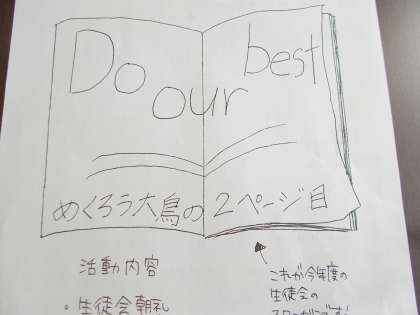 Do our best
めくろう大鳥の2ページ目
活動内容
・生徒会朝礼
これが今年度の
生徒会の
スローガンです!